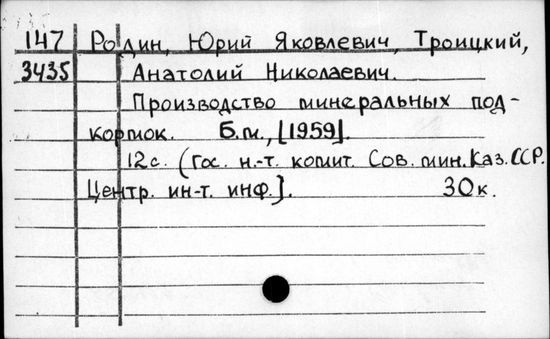 147 Родин, Юрий Яковлевич, Троицкий,
3435 Анатолий Николаевич.
Производство минеральных под-
кормок. Б.м., [1959].
12с. (Гос. н.-т. комит. Сов. мин. Каз. ССР.
Центр. ин-т. инф.]. 30к.